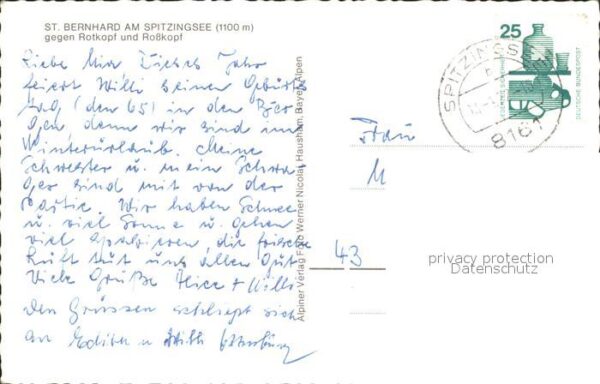 ST. BERNHARD AM SPITZINGSEE (1100 m)
gegen Rotkopf und Roßkopf
Liebe Mia Dieses Jahr
feiert Willi seinen Geburts
tag (den 65) in den Ber
gen, denn wir sind im
Winterurlaub. Meine
Schwester u. mein Schwa
ger sind mit von der
Partie. Wir haben Schnee
u. viel Sonne u. gehen
viel spazieren, die frische
Luft tut uns allen gut
Viele Grüße Alice + Willi
Den Grüssen schliept sich
an Edith u Willi
Alpiner Verlag Foto Werner Nicolai, Hausham, Bayer. Alpen
25
DEUTSCHE BUNDESPOST
SPITZINGSEE
b
8161
Frau
M
43
privacy protection
Datenschutz